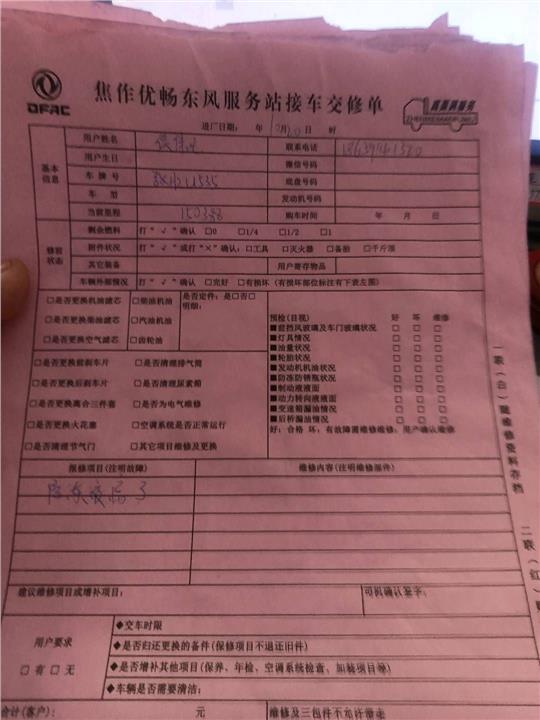 DFAC
焦作优畅东风服务站接车交修单
进厂日期: 年 月20日 时
基本信息
用户姓名 联系电话
用户生日 微信号码
车牌号 底盘号码
车型 发动机号码
当前里程 150388 购车时间 年 月 日
修前状态
剩余燃料 打“√”确认 □0 □1/4 □1/2 □1
附件状况 打“√”或打“×”确认:□工具 □灭火器 □备胎 □千斤顶
其它装备 用户寄存物品
车辆外部情况 打“√”确认 □完好 □有损坏(有损坏部位标注有下表左图)
□是否更换机油滤芯 □柴油机油 是否定件:是□否□
明细:
□是否更换柴油滤芯 □汽油机油
□是否更换空气滤芯 □齿轮油
预检(目视) 好 坏 维修
■前挡风玻璃及车门玻璃状况 □ □ □
■灯具情况 □ □ □
■油量状况 □ □ □
■轮胎状况 □ □ □
■发动机机油状况 □ □ □
■防冻防锈瓶状况 □ □ □
■制动液液面 □ □ □
■动力转向液液面 □ □ □
■变速箱漏油情况 □ □ □
■后桥漏油情况 □ □ □
好:合格 坏:有故障需维修维修:用户确认维修
□是否更换前刹车片 □是否清理排气筒
□是否更换后刹车片 □是否清理尿素箱
□是否更换离合三件套 □是否为电气维修
□是否更换火花塞 □空调系统是否正常运行
□是否清理节气门 □其它项目维修及更换
报修项目(注明故障) 维修内容(注明维修部件)
防冻液漏了
建议维修项目或增补项目: 司机确认签字:
用户要求
□有 □无
◆交车时限
◆是否归还更换的备件(保修项目不退还旧件)
◆是否增补其他项目(保养、年检、空调系统检查、加装项目等)
◆车辆是否需要清洁:
合计(客户): 元 维修及三包件不允许带走
一联(白)随维修资料存档
二联(红)